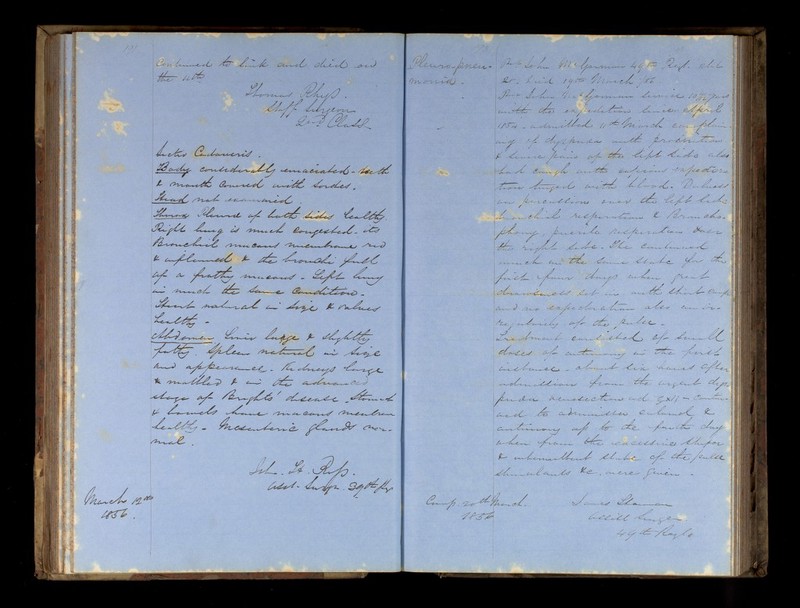 continued to sink and died on
the 11th
Thomas
Staff Surgeon
2nd Class
Sectio Cadaveris.
Body considerably emaciated - teeth
& mouth covered with sordes.
Head not examined
Thorax Pleurae of both sides healthy
Right lung is much congested. its
Bronchial mucous membrane red
& inflamed & the bronchi full
of a frothy mucous. Left lung
in much the same condition.
Heart natural in size & valves
healthy
Abdomen. Liver large & slightly
fatty Spleen natural in size
and appearance. Kidneys large
& mottled & in the advanced
stage of Brights' disease. Stomach
& bowels have mucous membrane
healthy. Mesenteric glands nor-
mal.
Asst. Surgn. 39th
March 12th
1856.
Pleuro-pneu-
monia.
John 49th Regt.
Died 19th March /56
John
with the expedition since April
1854 - admitted 11th March complain-
ing of dyspnoea with
& severe pains of the left side also
bad cough with expectora-
tion tinged with blood. Dulness
on percussion over the left side
bronchial respiration & Broncho-
phony, puerile respiration over
the right side. He continued
much in the same state for the
first four days when great
drowsiness set in with
and no expectoration also an ir-
regularity of the pulse.
Treatment consisted of small
doses of antimony in the first
instance - about six hours after
admission from the urgent dys-
pnoea venesection - contin-
ued to administer calomel &
antimony up to the fourth day
when from the excessive stupor
& intermittent state of the pulse
stimulants &c. were given.
Camp 20th March
1856
James
Assist Surgeon
49th Regt